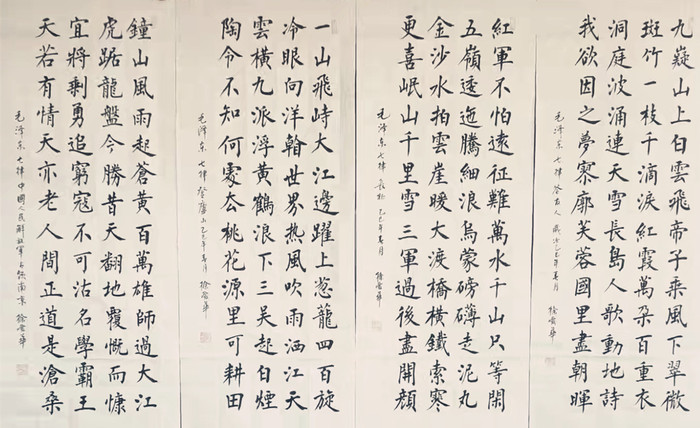 九嶷山上白雲飛帝子乘風下翠微
斑竹一枝千滴淚紅霞萬朵百重衣
洞庭波涌連天雪長島人歌動地詩
我欲因之夢寥廓芙蓉國里盡朝暉
毛泽东七律答友人 歲次乙巳年春月 徐華
紅軍不怕遠征難萬水千山只等閑
五嶺逶迤騰細浪烏蒙磅礴走泥丸
金沙水拍雲崖暖大渡橋橫鐵索寒
更喜岷山千里雪三軍過後盡開顏
毛泽东七律長征 乙巳年春月 徐華
一山飛峙大江邊躍上葱蘢四百旋
冷眼向洋看世界熱風吹雨洒江天
雲橫九派浮黃鶴浪下三吳起白煙
陶令不知何處去桃花源里可耕田
毛泽东七律登廬山 乙巳年春月 徐華
鐘山風雨起蒼黃百萬雄師過大江
虎踞龍盤今勝昔天翻地覆慨而慷
宜將剩勇追窮寇不可沽名學霸王
天若有情天亦老人間正道是滄桑
毛泽东七律中國人民解放軍占領南京 徐華